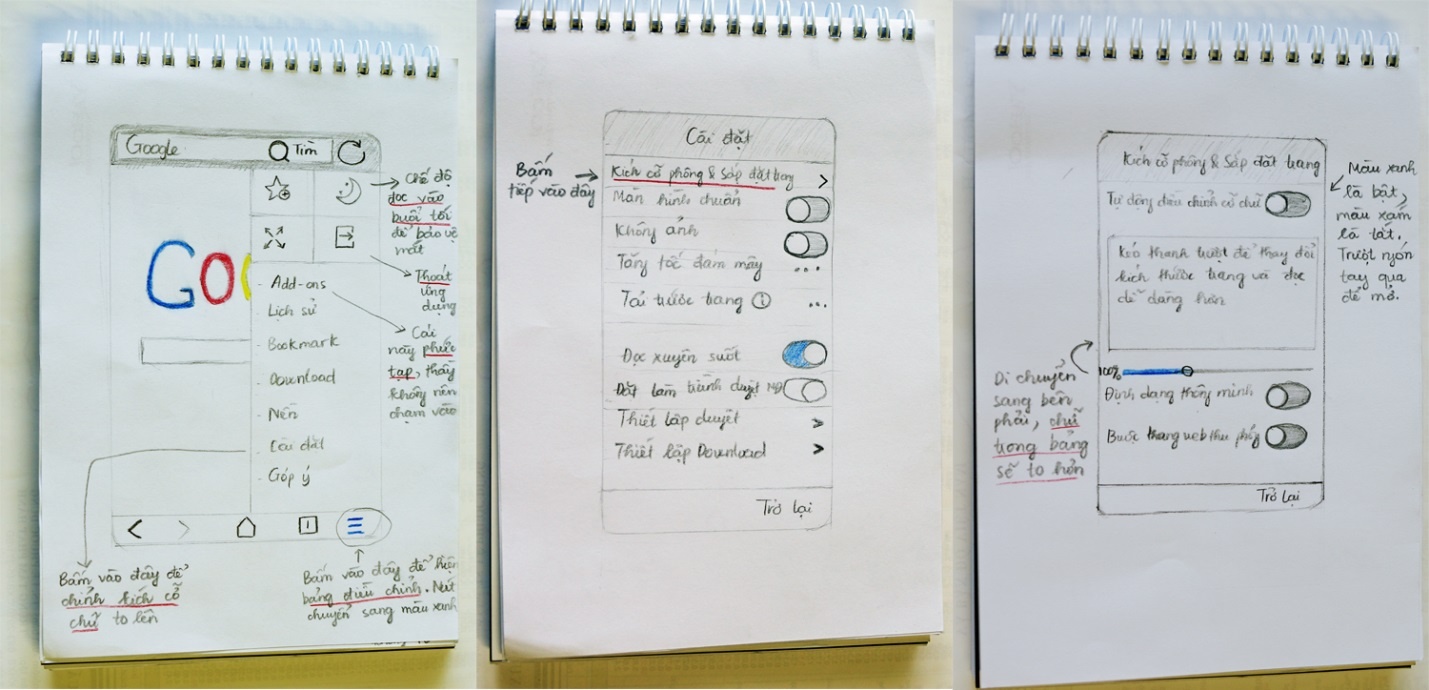 Google
Tìm
Chế độ
đọc vào
buổi tối
để bảo vệ
mắt
Goo
Thoát
ứng
dụng
- Add-ons
Lịch sử
- Bookmark
- Download
- Nền
- Cài đặt
- Góp ý
Cái
này phức
tạp, thầy
không nên
chạm vào
1
Bấm vào đây để
chỉnh kích cỡ
chữ to lên
Bấm vào đây để hiện
bảng điều chỉnh. Nút
chuyển sang màu xanh
Cài đặt
Bấm
tiếp vào đây
Kích cỡ phông & Sắp đặt trang
Màn hình chuẩn
Không ảnh
Tăng tốc đám mây ...
Tải trước trang ...
Đọc xuyên suốt
Đặt làm trình duyệt MĐ
Thiết lập duyệt
Thiết lập Download
Trở lại
Kích cỡ phông & Sắp đặt trang
Tự động điều chỉnh cỡ chữ
Kéo thanh trượt để thay đổi
kích thước trang và đọc
dễ dàng hơn
100%
Định dạng thông minh
Buộc trang web thu phóng
Trở lại
Màu xanh
là bật,
màu xám
là tắt.
Trượt ngón
tay qua
để mở.
Di chuyển
sang bên
phải, chữ
trong bảng
sẽ to hơn